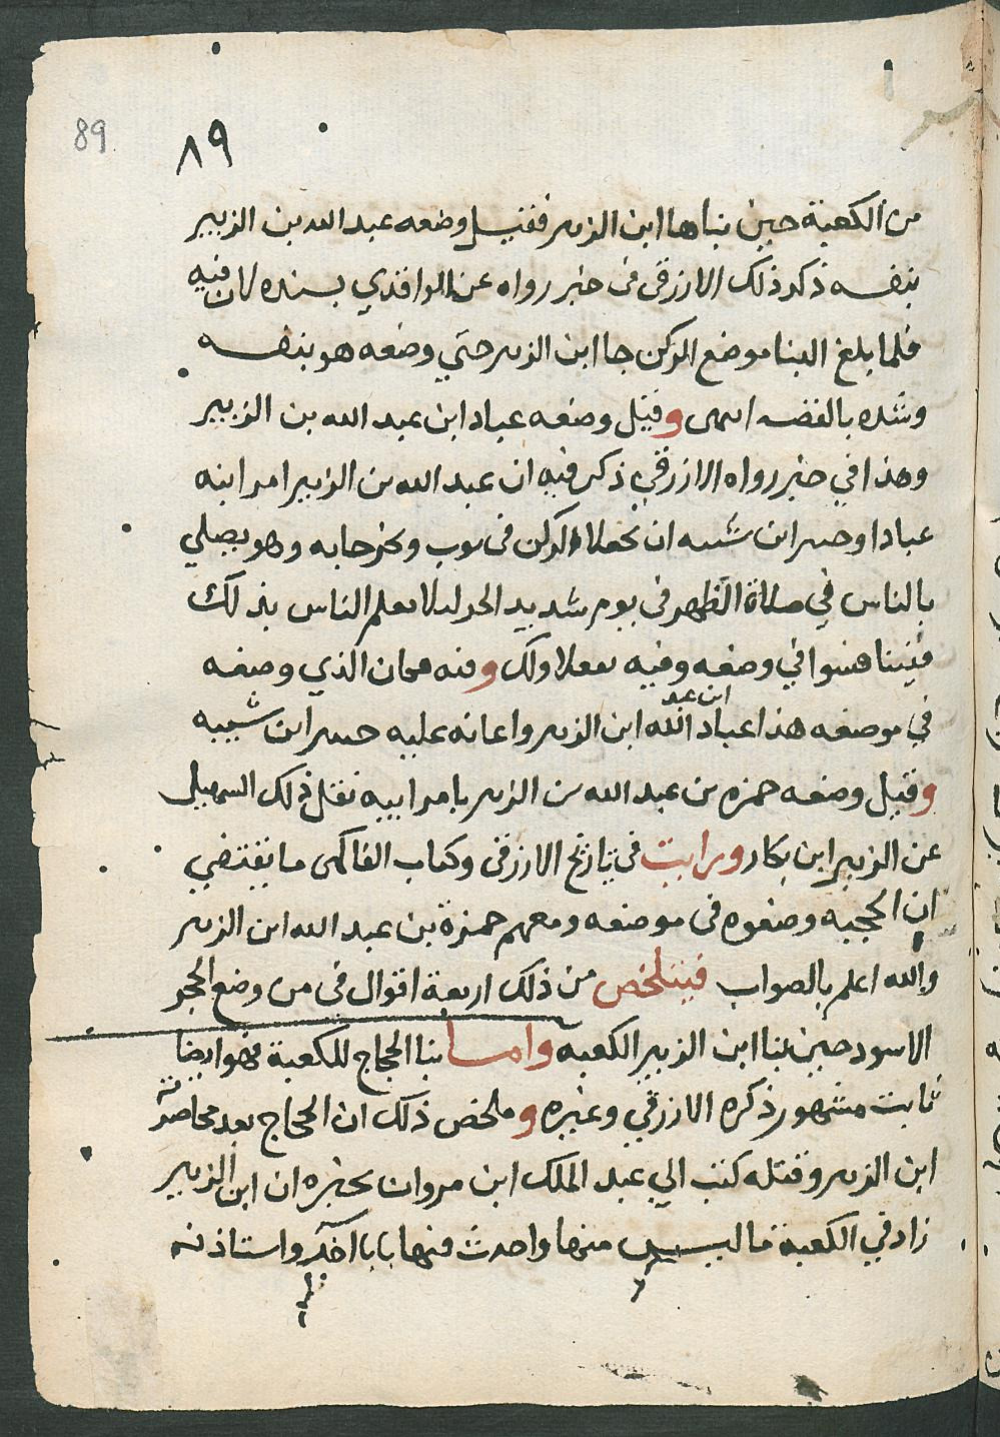 89
٨٩
من الكعبة حين بناها ابن الزبير فقيل وضعه عبد الله بن الزبير
بنفسه ذكر ذلك الازرقي في خبر رواه عن الواقدي بسنده لان فيه
فلما بلغ البنا موضع الركن جا ابن الزبير حتي وضعه هو بنفسه
وشده بالفضه انتهى وقيل وضعه عباد ابن عبد الله بن الزبير
وهذا في خبر رواه الازرقي ذكر فيه ان عبد الله بن الزبير امر ابنه
عبادا وجبير ابن شيبه ان يجعلا الركن في ثوب ويخرجا به وهو يصلي
بالناس في صلاة الظهر في يوم شديد الحر ليلا يعلم الناس بذلك
فيتنافسوا في وضعه وفيه ففعلا ذلك وفيه فكان الذي وضعه
في موضعه هذا عباد ابن عبد الله ابن الزبير واعانه عليه جبير ابن شيبه
وقيل وضعه حمزه بن عبد الله بن الزبير بامر ابيه نقل ذلك السهيلي
عن الزبير ابن بكار ورايت في تاريخ الازرقي وكتاب الفاكهى ما يقتضي
ان الحجبه وضعوه في موضعه ومعهم حمزة بن عبد الله ابن الزبير
والله اعلم بالصواب فيتلخص من ذلك اربعة اقوال في من وضع الحجر
الاسود حين بنا ابن الزبير الكعبه واما بنا الحجاج للكعبة فهو ايضا
ثابت مشهور ذكره الازرقي وغيره وملخص ذلك ان الحجاج بعد محاصرته
ابن الزبير وقتله كتب الي عبد الملك ابن مروان يخبره ان ابن الزبير
زاد في الكعبة ما ليس منها واحدث فيها بابا اخر واستاذنه